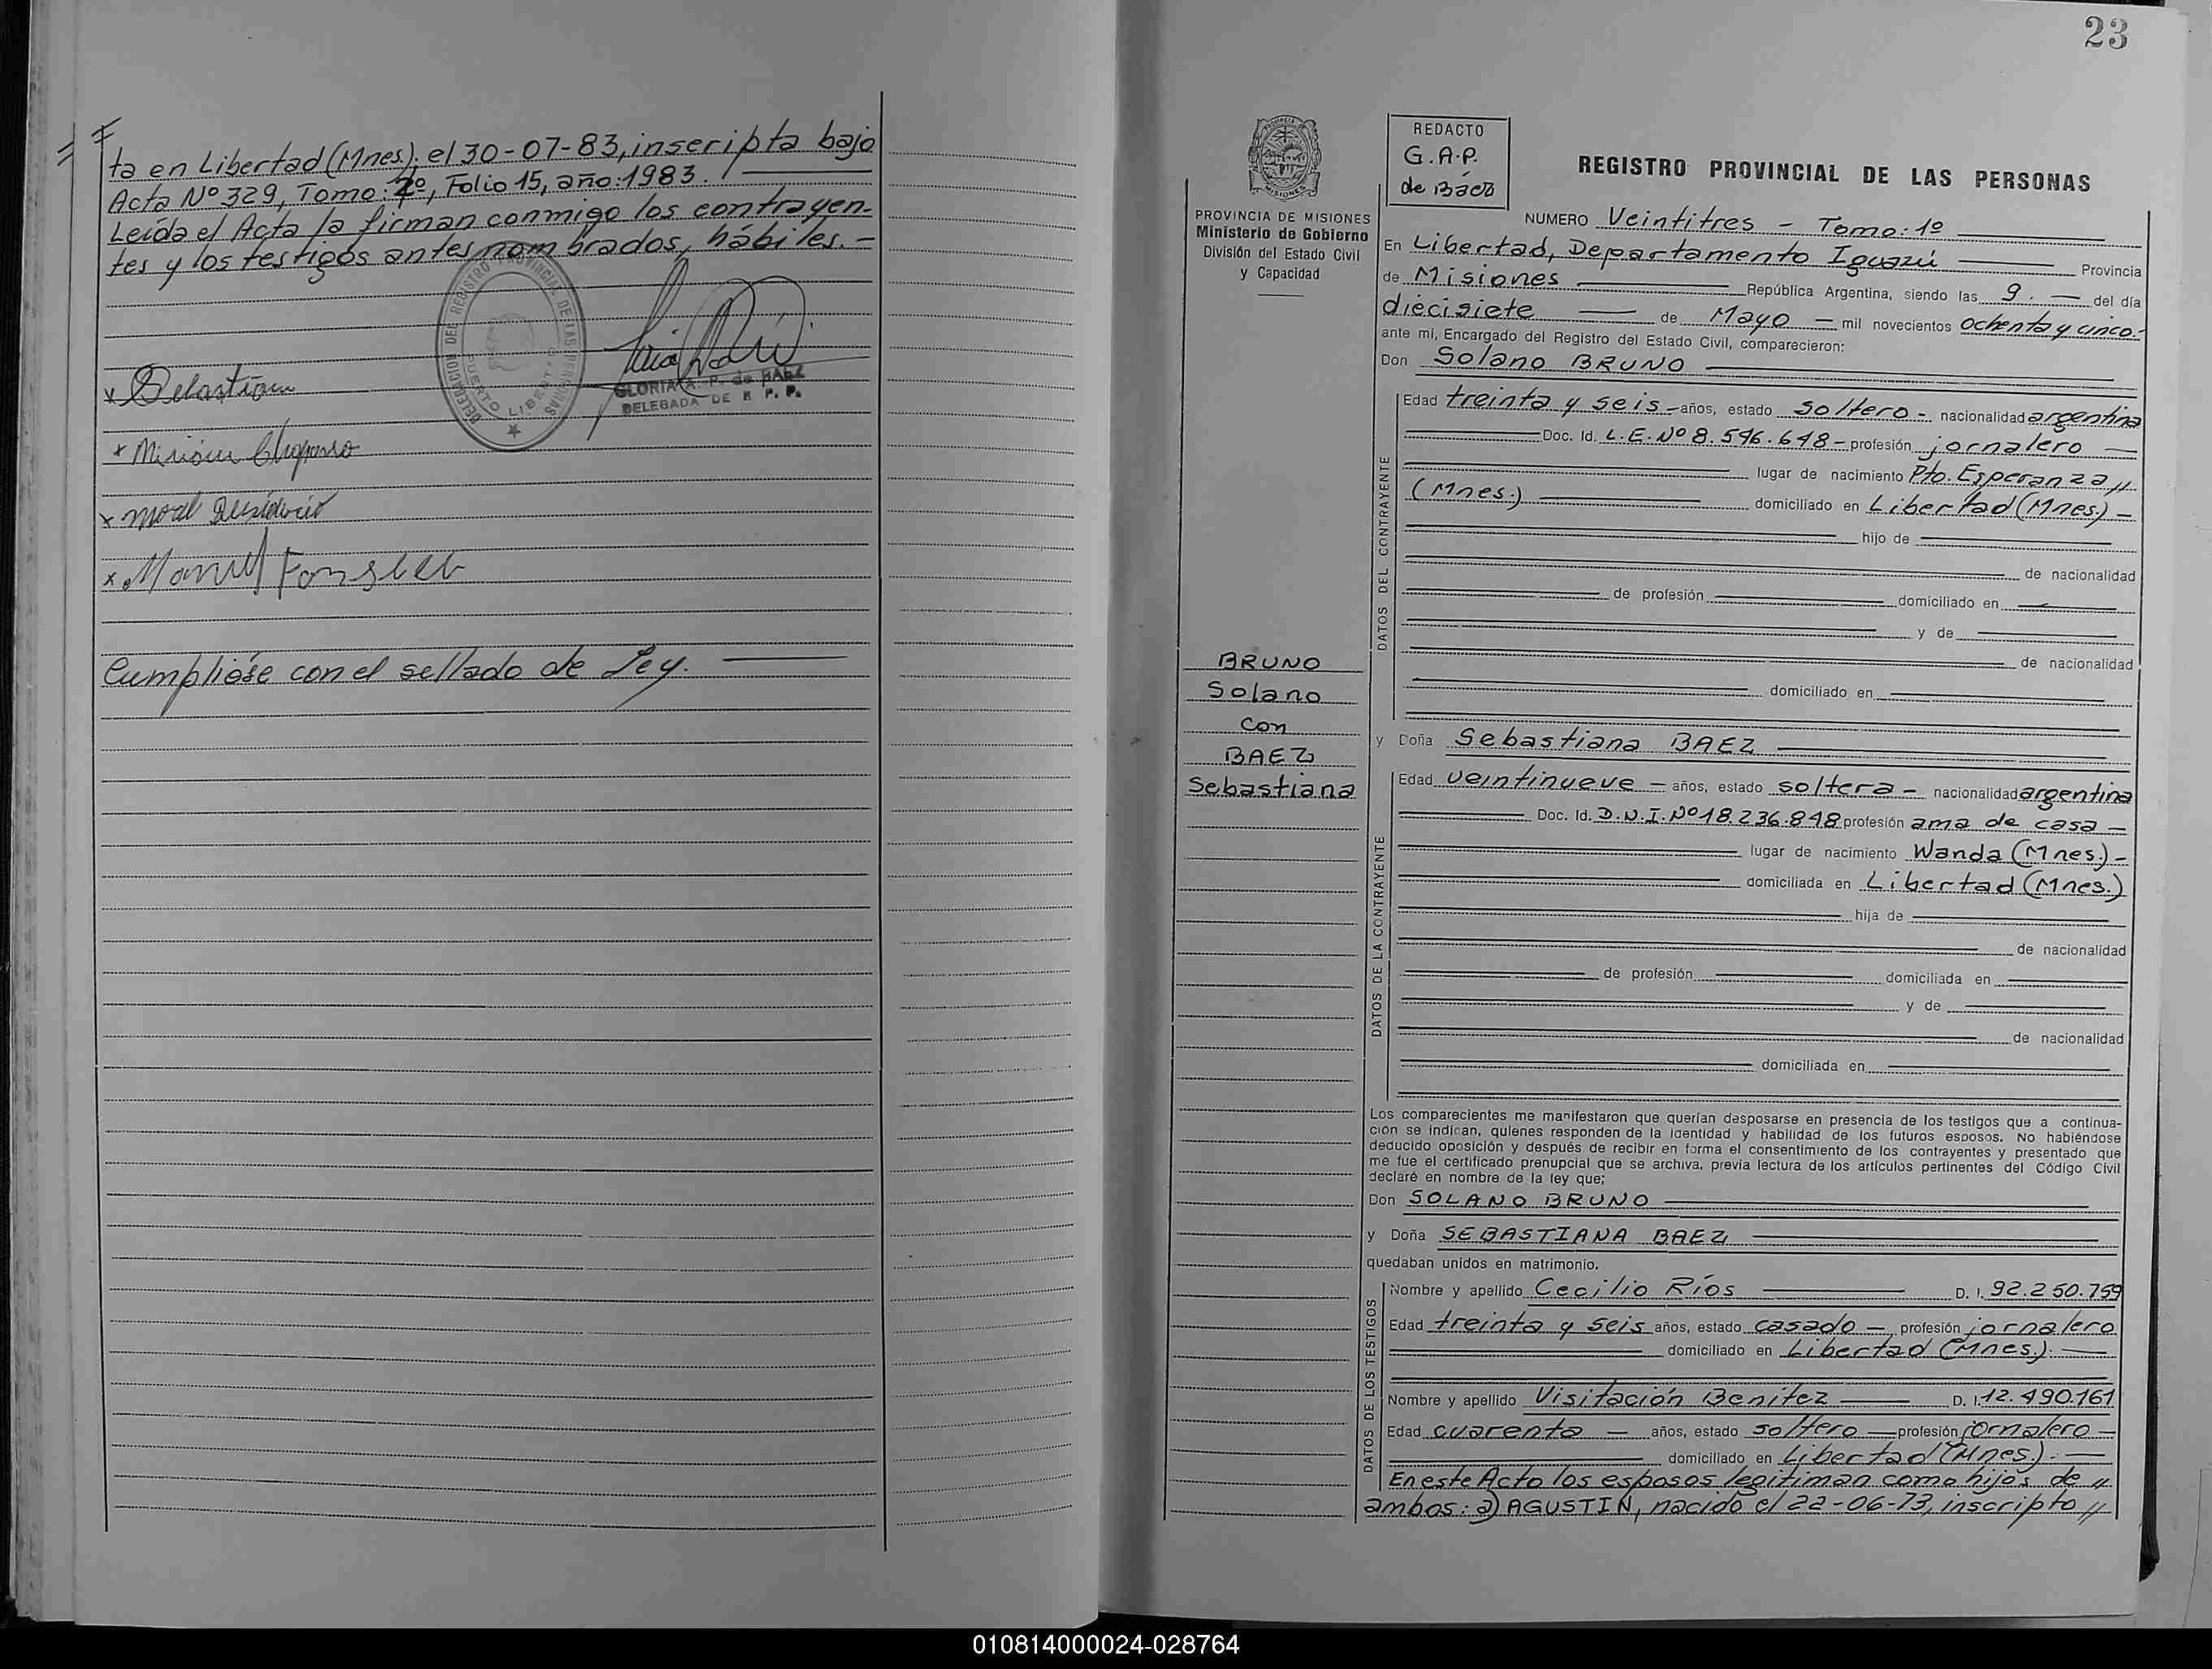 ta en Libertad (Mnes). el 30-07-83, inscripta bajo
Acta Nº 329, Tomo: 2º, Folio 15, año: 1983.
Leída el Acta la firman conmigo los contrayen-
tes y los testigos antes nombrados, hábiles. -
DELEGACION DEL REGISTRO PROVINCIAL DE LAS PERSONAS
PUERTO LIBERTAD
GLORIA A. P. de BAEZ
DELEGADA DE R P. P.
x Sebastian
x
x
x Manuel
Cumplióse con el sellado de Ley.
23
REDACTO
G.A.P.
de Báez
REGISTRO PROVINCIAL DE LAS PERSONAS
PROVINCIA DE MISIONES
Ministerio de Gobierno
División del Estado Civil
y Capacidad
NUMERO Veintitres - Tomo: 1º
En Libertad, Departamento Iguazú Provincia
de Misiones República Argentina, siendo las 9. - del día
diecisiete de Mayo - mil novecientos ochenta y cinco.-
ante mí, Encargado del Registro del Estado Civil, comparecieron:
Don Solano BRUNO
DATOS DEL CONTRAYENTE
Edad treinta y seis - años, estado soltero - nacionalidad argentina
Doc. Id. L.E. Nº 8.546.648 - profesión jornalero
lugar de nacimiento Pto. Esperanza //
(Mnes.) domiciliado en Libertad (Mnes.) -
hijo de
de nacionalidad
de profesión domiciliado en
y de
de nacionalidad
domiciliado en
BRUNO
Solano
con
BAEZ
Sebastiana
y Doña Sebastiana BAEZ
DATOS DE LA CONTRAYENTE
Edad veintinueve - años, estado soltera - nacionalidad argentina
Doc. Id. D.N.I. Nº 18.236.848 profesión ama de casa -
lugar de nacimiento Wanda (Mnes.) -
domiciliada en Libertad (Mnes.)
hija de
de nacionalidad
de profesión domiciliada en
y de
de nacionalidad
domiciliada en
Los comparecientes me manifestaron que querían desposarse en presencia de los testigos que a continua-
ción se indican, quienes responden de la identidad y habilidad de los futuros esposos. No habiéndose
deducido oposición y después de recibir en forma el consentimiento de los contrayentes y presentado que
me fue el certificado prenupcial que se archiva, previa lectura de los artículos pertinentes del Código Civil
declaré en nombre de la ley que:
Don SOLANO BRUNO
y Doña SEBASTIANA BAEZ
quedaban unidos en matrimonio.
DATOS DE LOS TESTIGOS
Nombre y apellido Cecilio Ríos D. I. 92.250.759
Edad treinta y seis años, estado casado - profesión jornalero
domiciliado en Libertad (Mnes.).
Nombre y apellido Visitación Benitez D. I. 12.490.161
Edad cuarenta - años, estado soltero - profesión jornalero -
domiciliado en Libertad (Mnes.).
En este Acto los esposos legitiman como hijos de //
ambos: a) AGUSTIN, nacido el 22-06-73, inscripto //
010814000024-028764